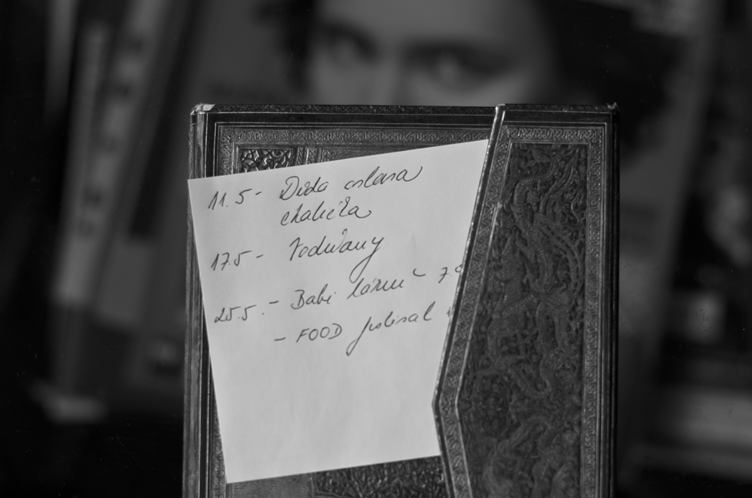 11.5 - Děda oslava
chalička
17.5 - Vodňany
25.5. - Babi lázně - 7
- FOOD festival